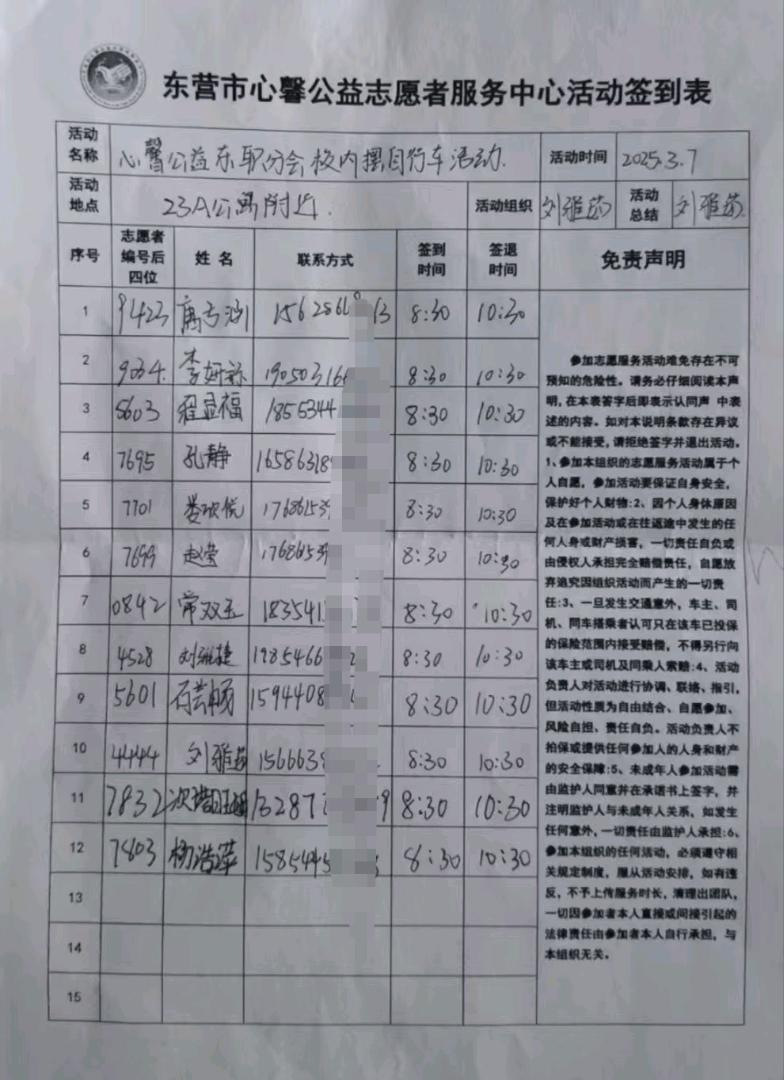 东营市心馨公益志愿者服务中心活动签到表
活动名称 心馨公益东职分会校内摆自行车活动. 活动时间 2025.3.7
活动地点 23A公寓附近. 活动组织 刘雅茹 活动总结 刘雅茹
序号 志愿者编号后四位 姓名 联系方式 签到时间 签退时间 免责声明
1 9423 156286 13 8:30 10:30
2 9034. 李妍 190503166 8:30 10:30
3 5603 程显福 1855344 8:30 10:30
4 7695 孔静 16586318 8:30 10:30
5 7701 娄欣悦 17686153 8:30 10:30
6 7699 赵莹 17686153 8:30 10:30
7 0842 常双玉 183541 8:30 10:30
8 4528 刘 捷 1985466 8:30 10:30
9 5601 石芸畅 1594408 8:30 10:30
10 4444 刘雅茹 1566639 8:30 10:30
11 7832 次 旺 13287 9 8:30 10:30
12 7803 杨浩萍 1585445 8:30 10:30
13
14
15
参加志愿服务活动难免存在不可
预知的危险性。请务必仔细阅读本声
明,在本表签字后即表示认同声 中表
述的内容。如对本说明条款存在异议
或不能接受,请拒绝签字并退出活动。
1、参加本组织的志愿服务活动属于个
人自愿，参加活动要保证自身安全,
保护好个人财物:2、因个人身体原因
及在参加活动或在往返途中发生的任
何人身或财产损害，一切责任自负或
由侵权人承担完全赔偿责任，自愿放
弃追究因组织活动而产生的一切责
任:3、一旦发生交通意外，车主、司
机、同车搭乘者认可只在该车已投保
的保险范围内接受赔偿，不得另行向
该车主或司机及同乘人索赔:4、活动
负责人对活动进行协调、联络、指引,
但活动性质为自由结合、自愿参加、
风险自担、责任自负。活动负责人不
担保或提供任何参加人的人身和财产
的安全保障:5、未成年人参加活动需
由监护人同意并在承诺书上签字，并
注明监护人与未成年人关系，如发生
任何意外,一切责任由监护人承担:6、
参加本组织的任何活动，必须遵守相
关规定制度，服从活动安排，如有违
反，不予上传服务时长，清理出团队,
一切因参加者本人直接或间接引起的
法律责任由参加者本人自行承担，与
本组织无关。